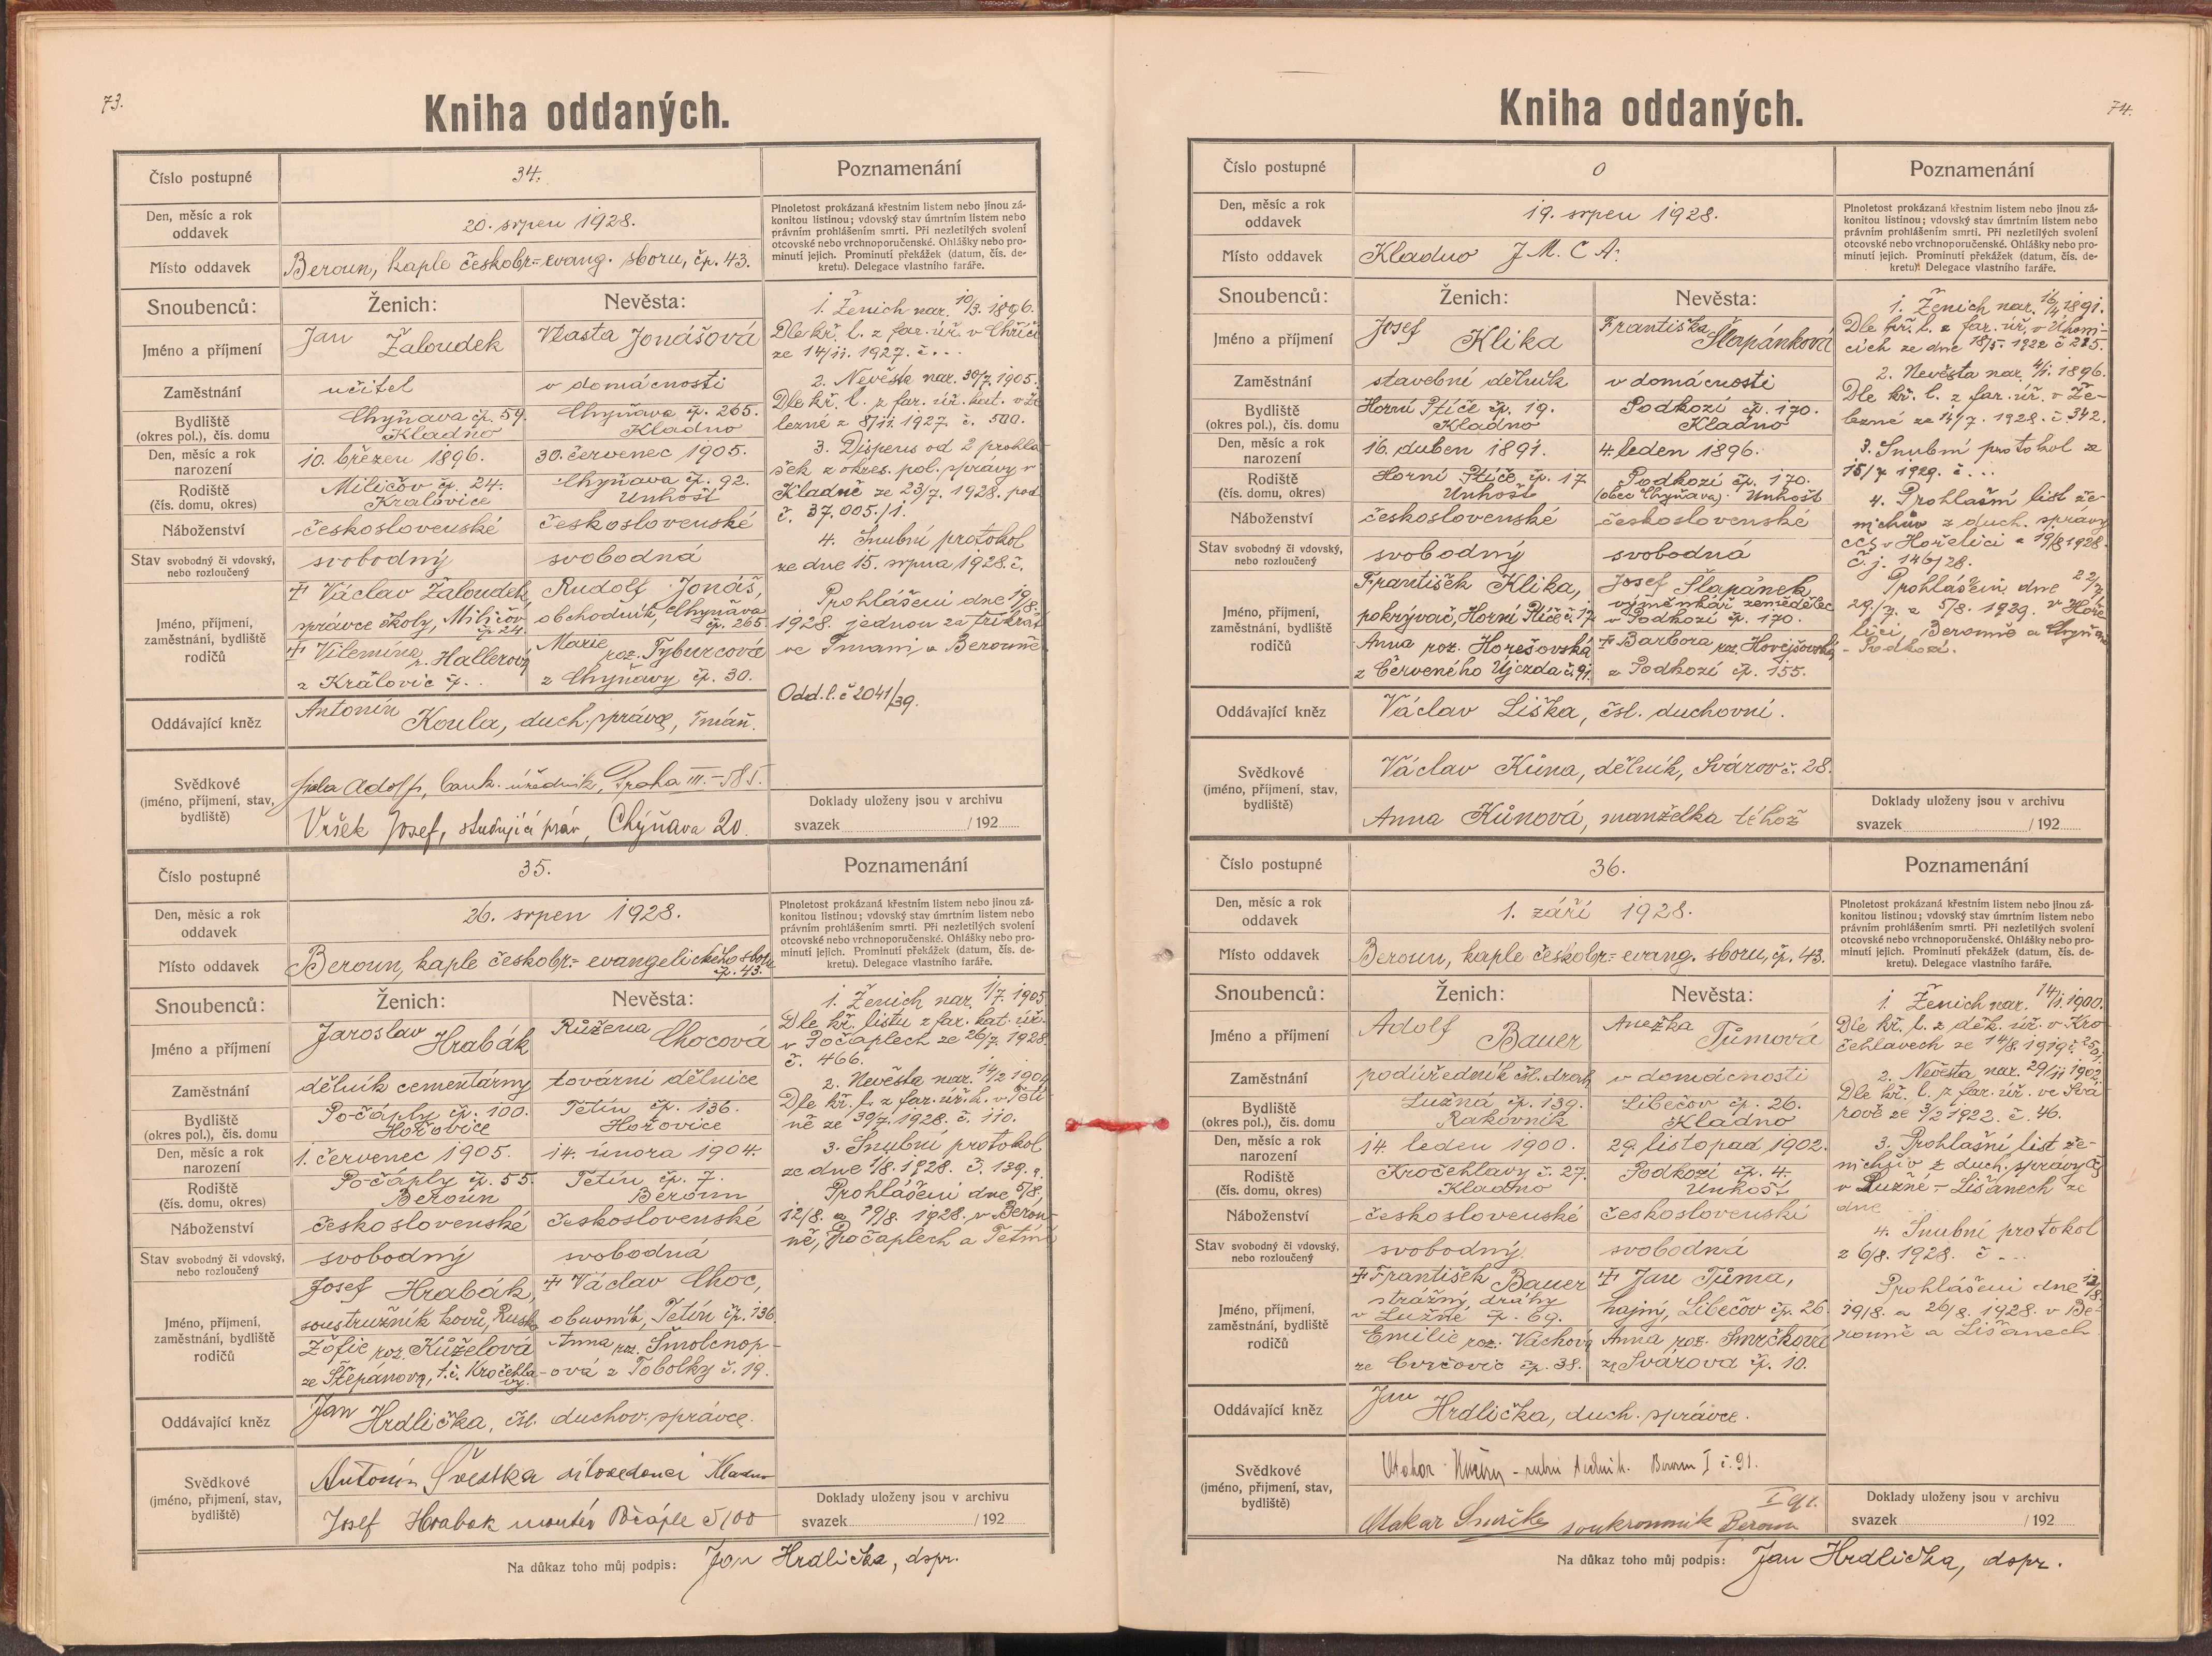 73.
Kniha oddaných.
Číslo postupné
34.
Poznamenání
Den, měsíc a rok
oddavek
20. srpen 1928.
Plnoletost prokázaná křestním listem nebo jinou zá-
konitou listinou; vdovský stav úmrtním listem nebo
právním prohlášením smrti. Při nezletilých svolení
otcovské nebo vrchnoporučenské. Ohlášky nebo pro-
minutí jejich. Prominutí překážek (datum, čís. de-
kretu). Delegace vlastního faráře.
Místo oddavek
Beroun, kaple českobr.=evang. sboru, čp. 43.
Snoubenců:
Ženich:
Nevěsta:
Jméno a příjmení
Jan Žaloudek
Vlasta Jonášová
Zaměstnání
učitel
v domácnosti
Bydliště
(okres pol.), čís. domu
Chyňava čp. 59.
Kladno
Chyňava čp. 265.
Kladno
Den, měsíc a rok
narození
10. březen 1896.
30. červenec 1905.
Rodiště
(čís. domu, okres)
Miličov čp. 24.
Kralovice
Chyňava čp. 92.
Unhošť
Náboženství
československé
československé
Stav svobodný či vdovský,
nebo rozloučený
svobodný
svobodná
Jméno, příjmení,
zaměstnání, bydliště
rodičů
‡ Václav Žaloudek,
správce školy, Miličov
čp 24.
‡ Vilemína r. Hallerová
z Kralovic čp. ..
Rudolf Jonáš,
obchodník, Chyňava
čp. 265.
Marie roz. Tyburcová
z Chyňavy čp. 30.
Oddávající kněz
Antonín Koula, duch. správce, Tmáň.
Svědkové
(jméno, příjmení, stav,
bydliště)
Adolf, bank. úředník, Praha III.-585.
Vršek Josef, studující práv, Chýňava 20.
1. Ženich nar. 10/3. 1896.
Dle kř. l. z far. úř. v Chříči
ze 14/11. 1927. č...
2. Nevěsta nar. 30/7. 1905.
Dle kř. l. z far. úř. kat. v Že
lezné z 8/11. 1927. č. 500.
3. Dispens od 2 prohlá
šek z okres. pol. správy v
Kladně ze 23/7. 1928. pod
č. 37.005./1.
4. Snubní protokol
ze dne 15. srpna 1928. č.
Prohlášeni dne 19/8.
1928. jednou za třikrát
ve Tmani a Berouně
Odd. l. č 2041/39.
Doklady uloženy jsou v archivu
svazek /192
Číslo postupné
35.
Poznamenání
Den, měsíc a rok
oddavek
26. srpen 1928.
Plnoletost prokázaná křestním listem nebo jinou zá-
konitou listinou; vdovský stav úmrtním listem nebo
právním prohlášením smrti. Při nezletilých svolení
otcovské nebo vrchnoporučenské. Ohlášky nebo pro-
minutí jejich. Prominutí překážek (datum, čís. de-
kretu). Delegace vlastního faráře.
Místo oddavek
Beroun, kaple českobr.=evangelického sboru
čp. 43.
Snoubenců:
Ženich:
Nevěsta:
Jméno a příjmení
Jaroslav Hrabák
Růžena Chocová
Zaměstnání
dělník cementárny
tovární dělnice
Bydliště
(okres pol.), čís. domu
Počáply čp. 100.
Hořovice
Tetín čp. 136.
Hořovice
Den, měsíc a rok
narození
1. červenec 1905.
14. února 1904.
Rodiště
(čís. domu, okres)
Počáply čp. 55.
Beroun
Tetín čp. 7.
Beroun
Náboženství
československé
československé
Stav svobodný či vdovský,
nebo rozloučený
svobodný
svobodná
Jméno, příjmení,
zaměstnání, bydliště
rodičů
Josef Hrabák,
soustružník kovů,
Žofie roz. Kůželová
ze Štěpánova, t.č. Kročehla
vy.
‡ Václav Choc,
obuvník, Tetín čp. 136
Anna roz. Smolenop-
ová z Tobolky č. 19.
Oddávající kněz
Jan Hrdlička, čsl. duchov. správce.
Svědkové
(jméno, příjmení, stav,
bydliště)
Antonín Švestka Kladno
Josef Hrabak montér Počáple č 100
1. Ženich nar. 1/7. 1905
Dle kř. listu z far. kat. úř.
v Počaplech ze 26/7. 1928.
č. 466.
2. Nevěsta nar. 14/2 1904
Dle kř. l. z far. úř. k. v Tetí
ně ze 30/7. 1928. č. 110.
3. Snubní protokol
ze dne 1/8. 1928. č. 139.
Prohlášeni dne 5/8,
12/8. a 19/8. 1928. v Berou-
ně, Počaplech a Tetíně
Doklady uloženy jsou v archivu
svazek /192
Na důkaz toho můj podpis: Jan Hrdlička, dspr.
74.
Kniha oddaných.
Číslo postupné
0
Poznamenání
Den, měsíc a rok
oddavek
19. srpen 1928.
Plnoletost prokázaná křestním listem nebo jinou zá-
konitou listinou; vdovský stav úmrtním listem nebo
právním prohlášením smrti. Při nezletilých svolení
otcovské nebo vrchnoporučenské. Ohlášky nebo pro-
minutí jejich. Prominutí překážek (datum, čís. de-
kretu). Delegace vlastního faráře.
Místo oddavek
Kladno J. M. C A.
Snoubenců:
Ženich:
Nevěsta:
Jméno a příjmení
Josef Klika
Františka Šlapánková
Zaměstnání
stavební dělník
v domácnosti
Bydliště
(okres pol.), čís. domu
Horní Ptíče čp. 19.
Kladno
Podkozí čp. 170.
Kladno
Den, měsíc a rok
narození
16. duben 1891.
4. leden 1896.
Rodiště
(čís. domu, okres)
Horní Ptíče čp. 17
Unhošť
Podkozí čp. 170.
(obec Chyňava). Unhošť
Náboženství
československé
československé
Stav svobodný či vdovský,
nebo rozloučený
svobodný
svobodná
Jméno, příjmení,
zaměstnání, bydliště
rodičů
František Klika,
pokrývač, Horní Ptíče č. 17
Anna roz. Horešovská
z Červeného Újezda č. 91.
Josef Šlapánek,
výměnkář zemědělec
v Podkozí čp. 170.
‡ Barbora roz. Hovejšovská
z Podkozí čp. 155.
Oddávající kněz
Václav Liška, čsl. duchovní.
Svědkové
(jméno, příjmení, stav,
bydliště)
Václav Kůna, dělník, Svárov č. 28.
Anna Kůnová, manželka téhož
1. Ženich nar. 16/4 1891.
Dle kř. l. z far. úř. v Úhoni-
cích ze dne 18/5. 1922 č 215.
2. Nevěsta nar. 4/1. 1896.
Dle kř. l. z far. úř. v Že-
lezné ze 14/7. 1928. č. 342.
3. Snubní protokol ze
15/7. 1929. č...
4. Prohlašní list že-
nichův z duch. správy
CČS v Hořelici z 19/8 1928.
č. j. 146/28.
Prohlášeni dne 22/7,
29./7. a 5/8. 1929. v Hoře
lici, Berouně a Chyňavě
- Podkozí.
Doklady uloženy jsou v archivu
svazek /192
Číslo postupné
36.
Poznamenání
Den, měsíc a rok
oddavek
1. září 1928.
Plnoletost prokázaná křestním listem nebo jinou zá-
konitou listinou; vdovský stav úmrtním listem nebo
právním prohlášením smrti. Při nezletilých svolení
otcovské nebo vrchnoporučenské. Ohlášky nebo pro-
minutí jejich. Prominutí překážek (datum, čís. de-
kretu). Delegace vlastního faráře.
Místo oddavek
Beroun, kaple českobr.=evang. sboru, čp. 43.
Snoubenců:
Ženich:
Nevěsta:
Jméno a příjmení
Adolf Bauer
Anežka Tůmová
Zaměstnání
podúředník čsl. drah
v domácnosti
Bydliště
(okres pol.), čís. domu
Lužná čp. 139.
Rakovník
Libečov čp. 26.
Kladno
Den, měsíc a rok
narození
14. leden 1900.
29. listopad 1902.
Rodiště
(čís. domu, okres)
Kročehlavy č. 27.
Kladno
Podkozí čp. 4.
Unhošť
Náboženství
československé
československé
Stav svobodný či vdovský,
nebo rozloučený
svobodný
svobodná
Jméno, příjmení,
zaměstnání, bydliště
rodičů
‡ František Bauer
strážný dráhy
v Lužné čp. 69.
Emilie roz. Váchová
ze Cvrčovic čp. 38.
‡ Jan Tůma,
hajný, Libečov čp. 26.
Anna roz. Smrčková
ze Svárova čp. 10.
Oddávající kněz
Jan Hrdlička, duch. správce.
Svědkové
(jméno, příjmení, stav,
bydliště)
Otakar Beroun I č. 91.
Otakar soukromník Beroun
I 91.
1. Ženich nar. 14/1. 1900.
Dle kř. l. z děk. úř. v Kro-
čehlavech ze 14/8. 1919 č. 2501.
2. Nevěsta nar. 29/11 1902
Dle kř. l. z far. úř. ve Svá
rově ze 3/2 1922. č. 46.
3. Prohlašní list že-
nichův z duch. správy čs
v Lužné - Lišanech ze
dne
4. Snubní protokol
z 6/8. 1928. č ...
Prohlášeni dne 12/8.
19/8. a 26/8. 1928. v Be-
rouně a Lišanech.
Doklady uloženy jsou v archivu
svazek /192
Na důkaz toho můj podpis: Jan Hrdlička, dspr.